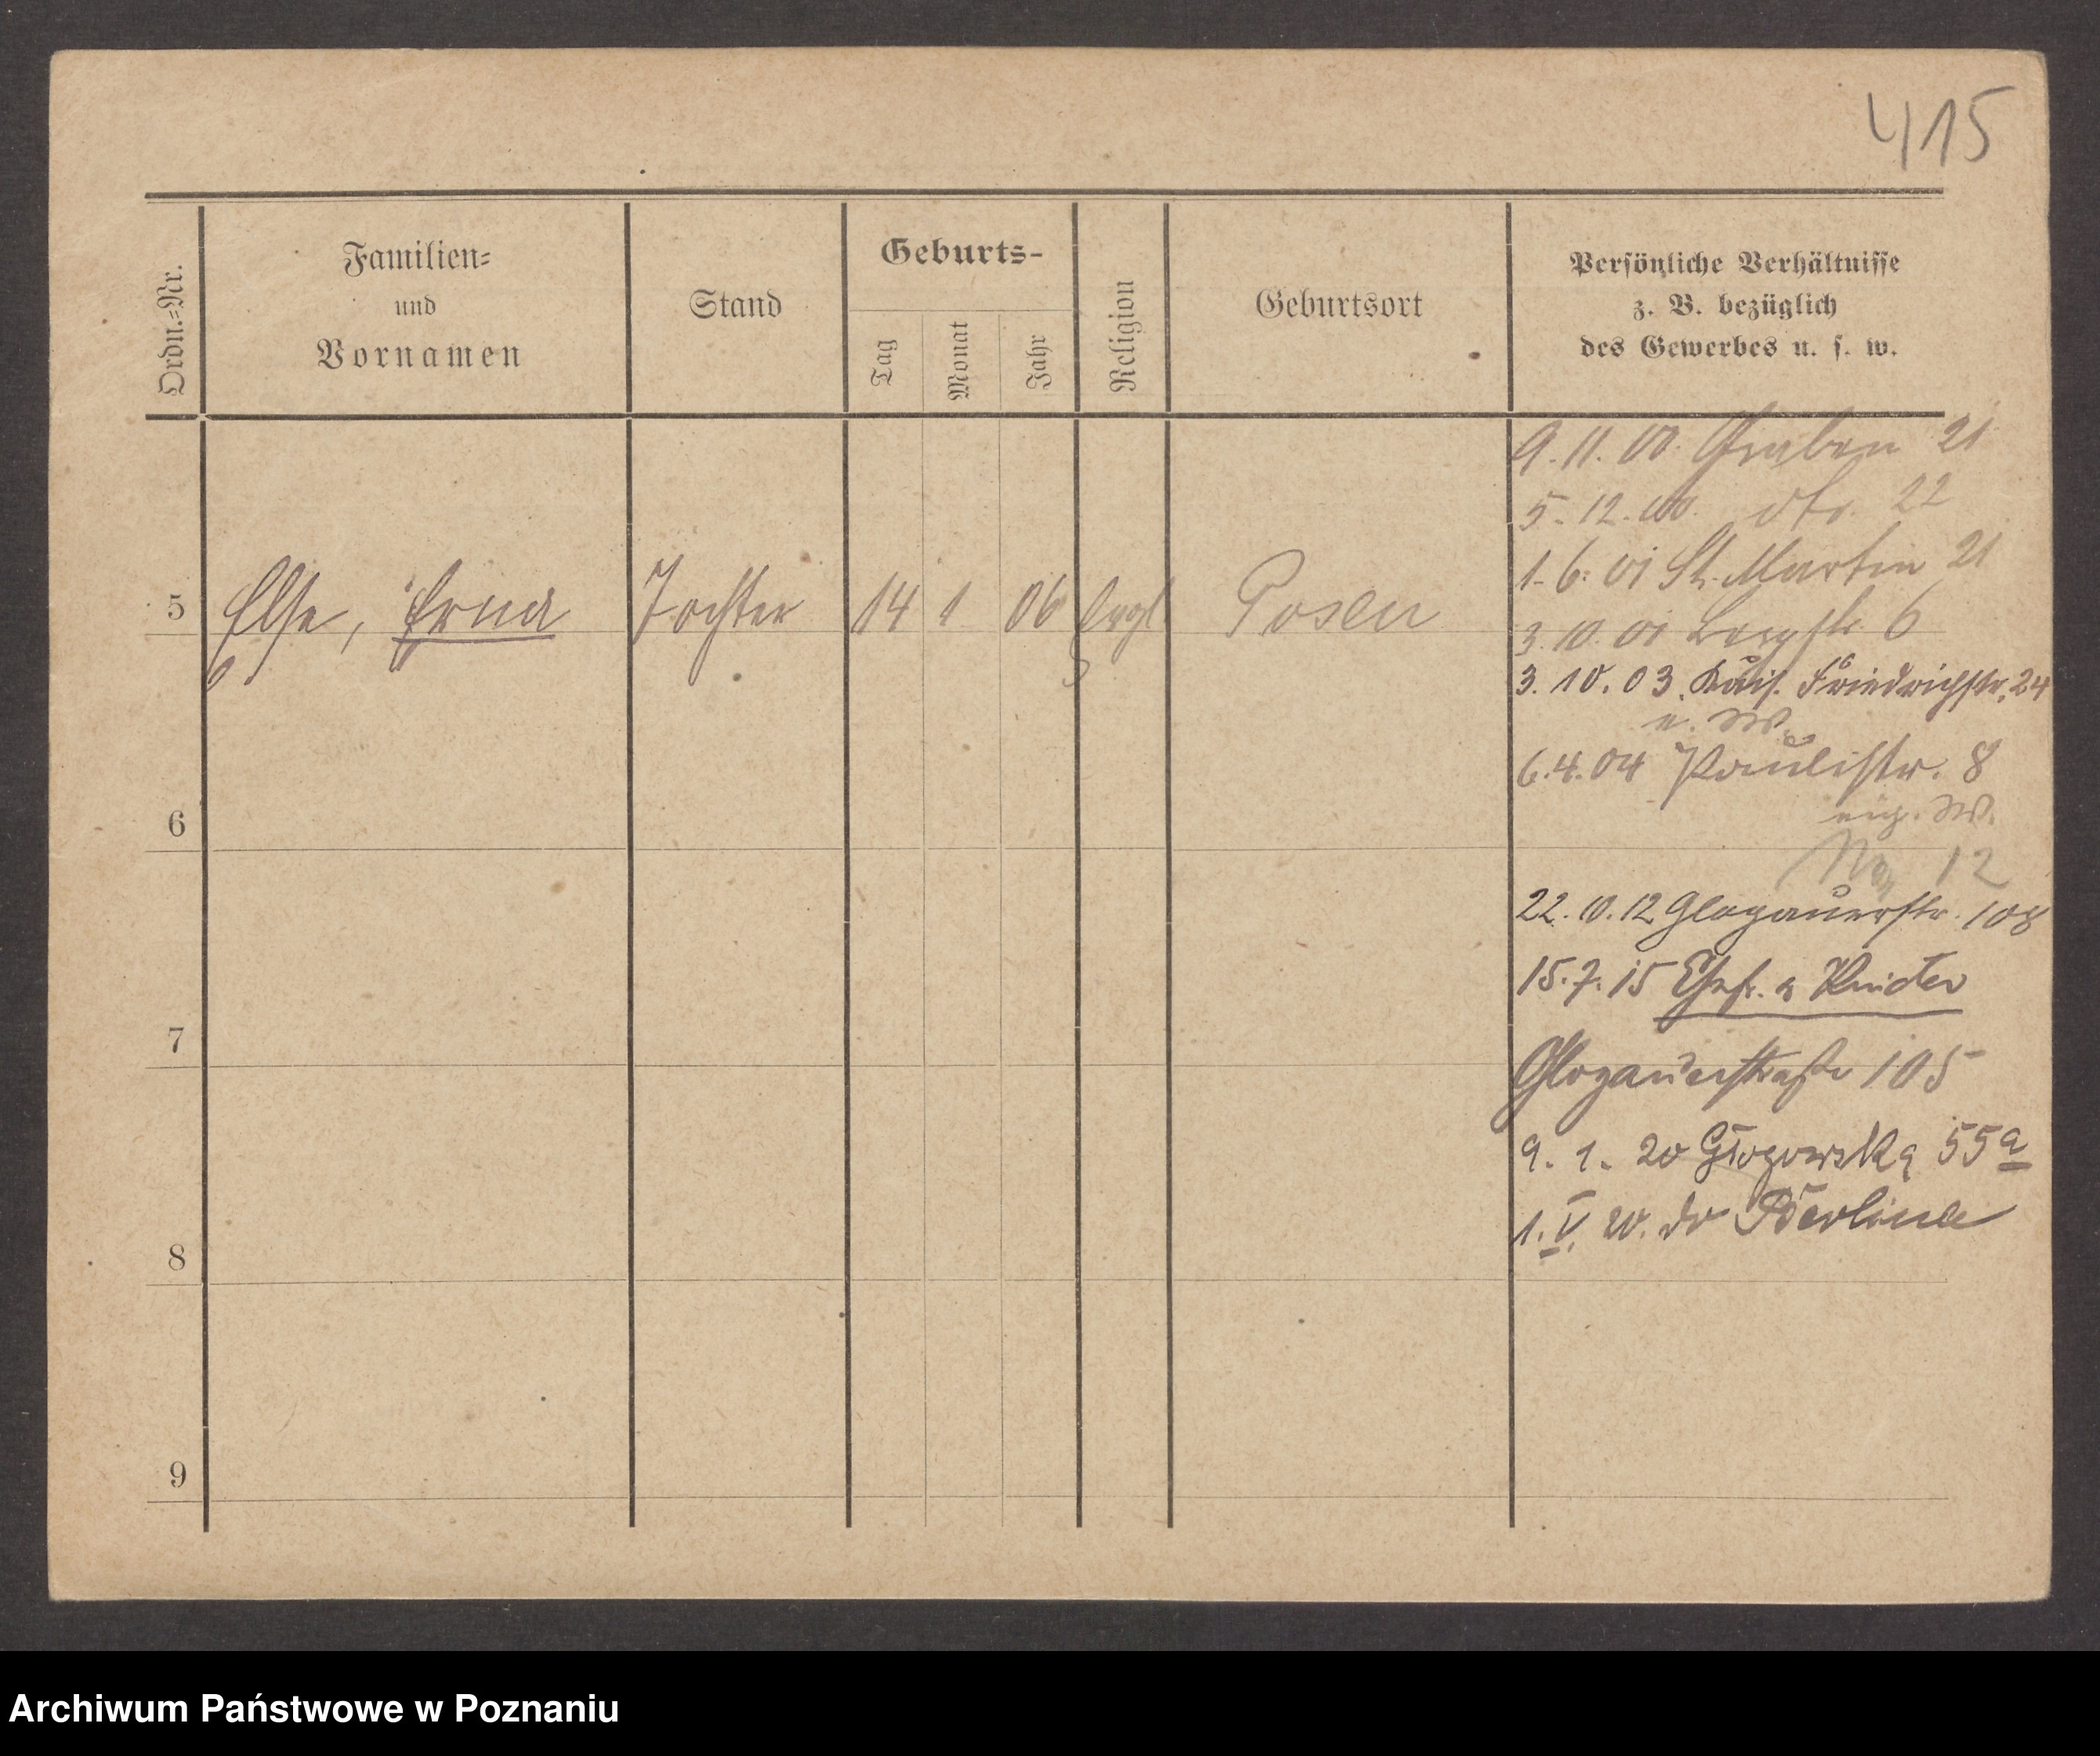 415
Ordn.=Nr.
Familien=
und
Vornamen
Stand
Geburts-
Tag
Monat
Jahr
Religion
Geburtsort
Persönliche Verhältnisse
z. B. bezüglich
des Gewerbes u. s. w.
5 Else, Erna Tochter 14 1 06 evgl Posen
6
7
8
9
9. 11. 00. Graben 21
5. 12. 00. dto. 22
1. 6. 01 St. Martin 21
3. 10. 01 Bergstr. 6
3. 10. 03. Kais. Friedrichstr. 24
e. W.
6. 4. 04 Paulistr. 8
eig. W.
12
22. 10. 12 Glogauerstr. 108
15. 7. 15 Ehefr. u Kinder
Glogauerstraße 105
9. 1. 20 Głogowska 55a
1. V. 20. do Berlina
Archiwum Państwowe w Poznaniu